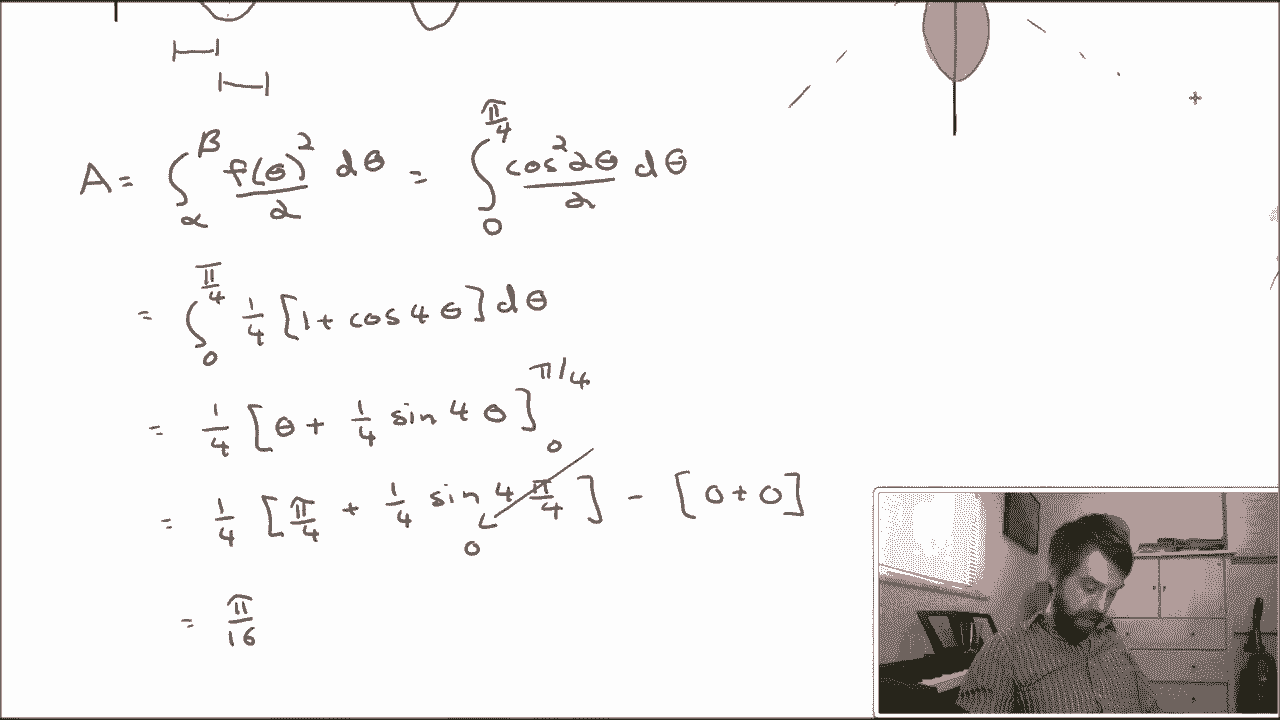 A = ∫_α^β f(θ)²/2 dθ = ∫_0^{π/4} cos²2θ/2 dθ
= ∫_0^{π/4} 1/4 [1 + cos 4θ] dθ
= 1/4 [θ + 1/4 sin 4θ]_0^{π/4}
= 1/4 [π/4 + 1/4 sin 4 π/4] - [0 + 0]
0
= π/16